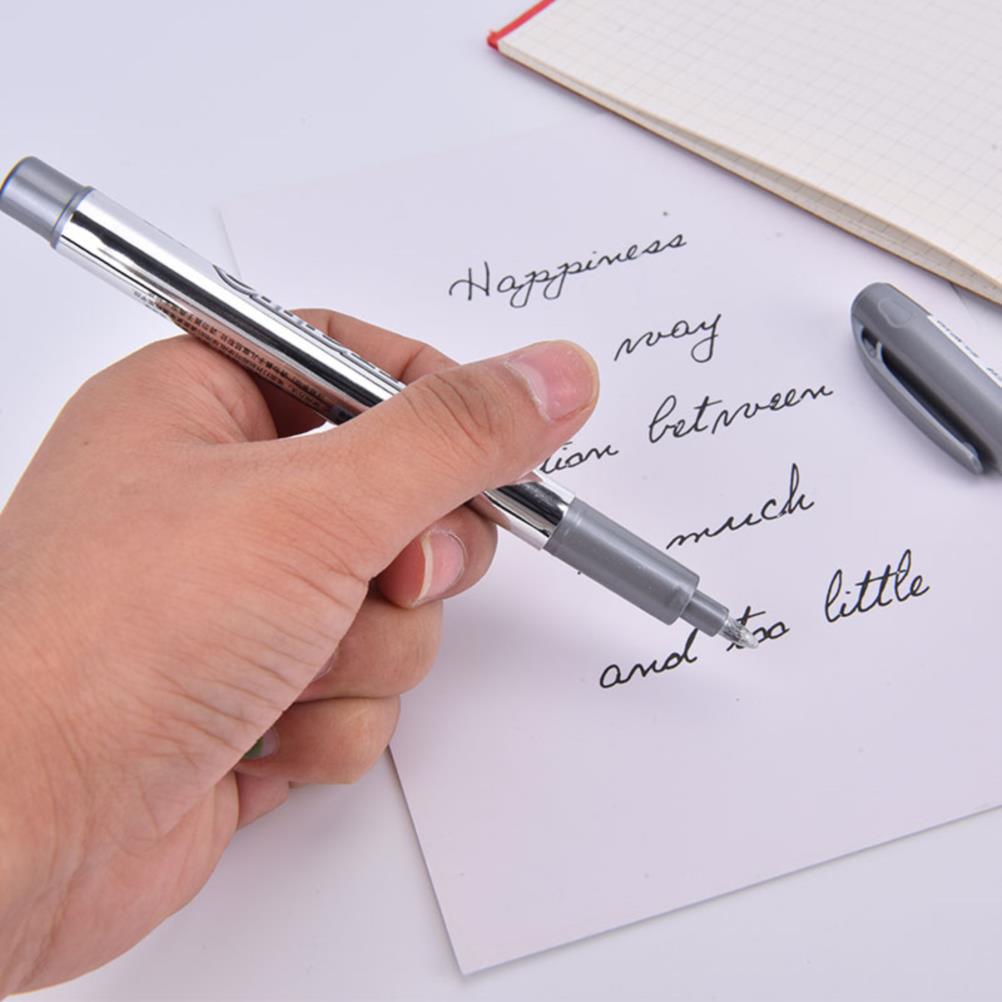 Happiness
way
tion between
much
and too little